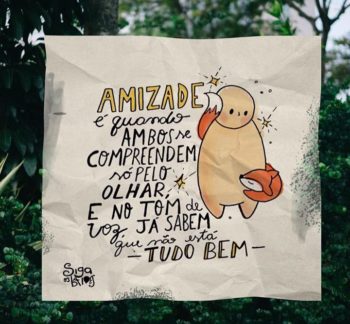 AMIZADE
é quando
AMBOS se
COMPREENDEM
só pelo
OLHAR,
E NO TOM de
voz JÁ SABEM
que não está
- TUDO BEM -
Siga
os